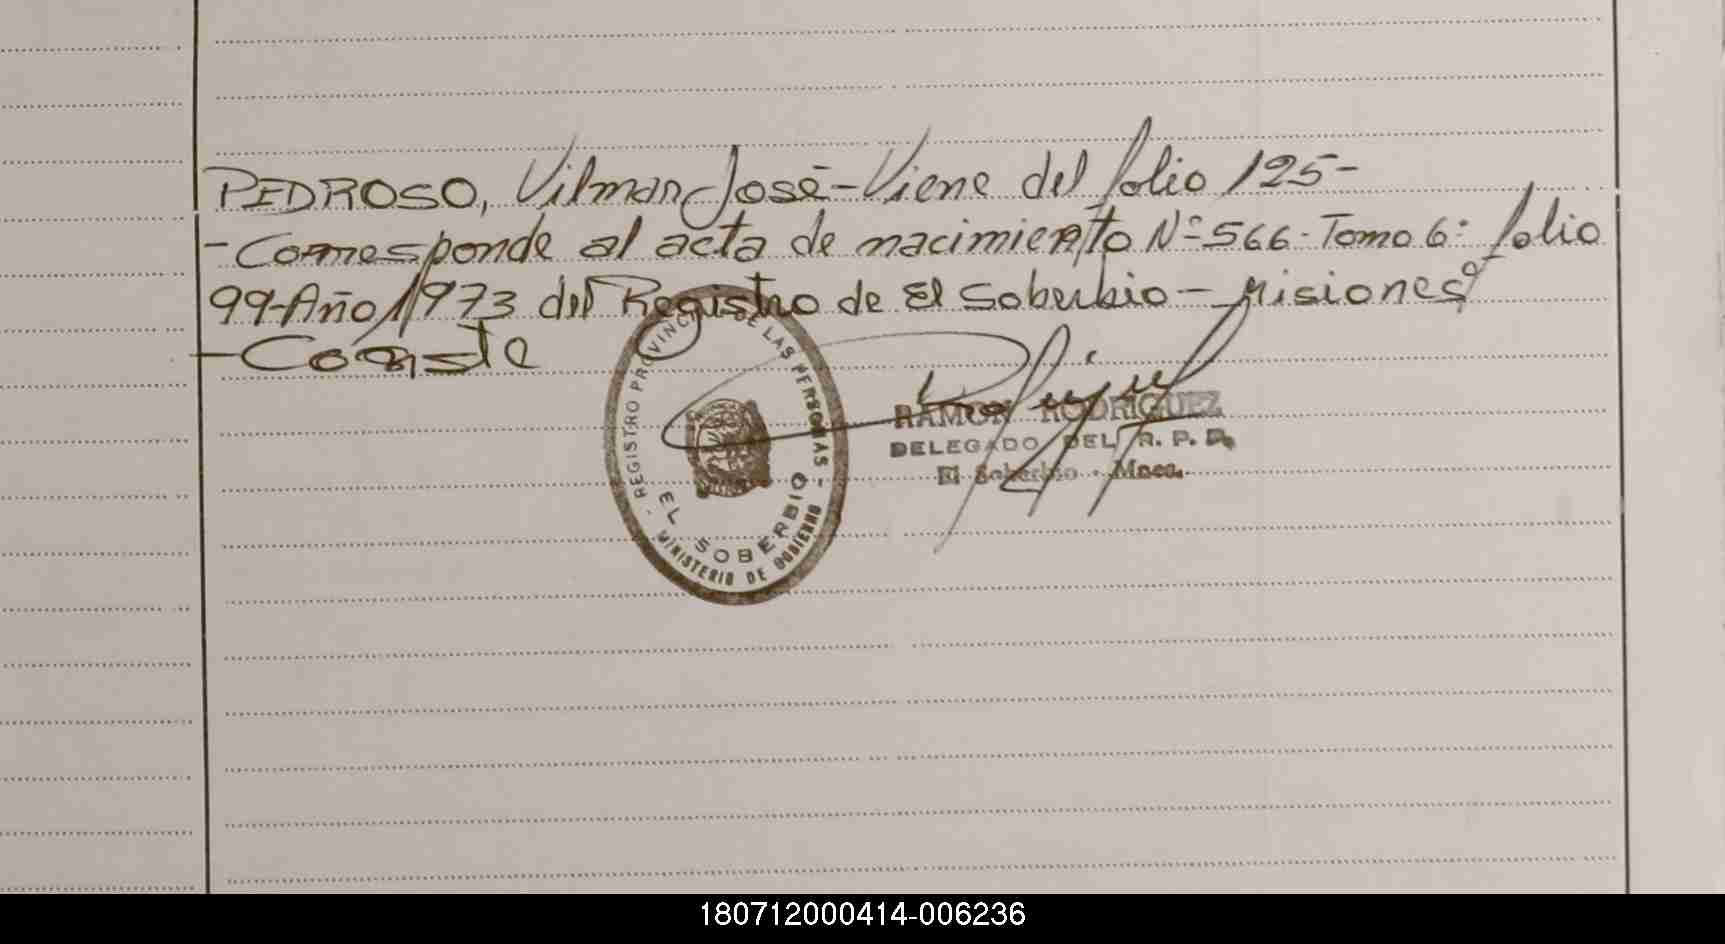 PEDROSO, Vilmar José - Viene del folio 125 -
- Corresponde al acta de nacimiento Nº 566 - Tomo 6º folio
99 - Año 1973 del Registro de El Soberbio - Misiones
- Conste
REGISTRO PROVINCIAL DE LAS PERSONAS -
EL SOBERBIO
- MINISTERIO DE GOBIERNO
RAMON RODRIGUEZ
DELEGADO DEL R. P. P.
El Soberbio - Mnes.
180712000414-006236